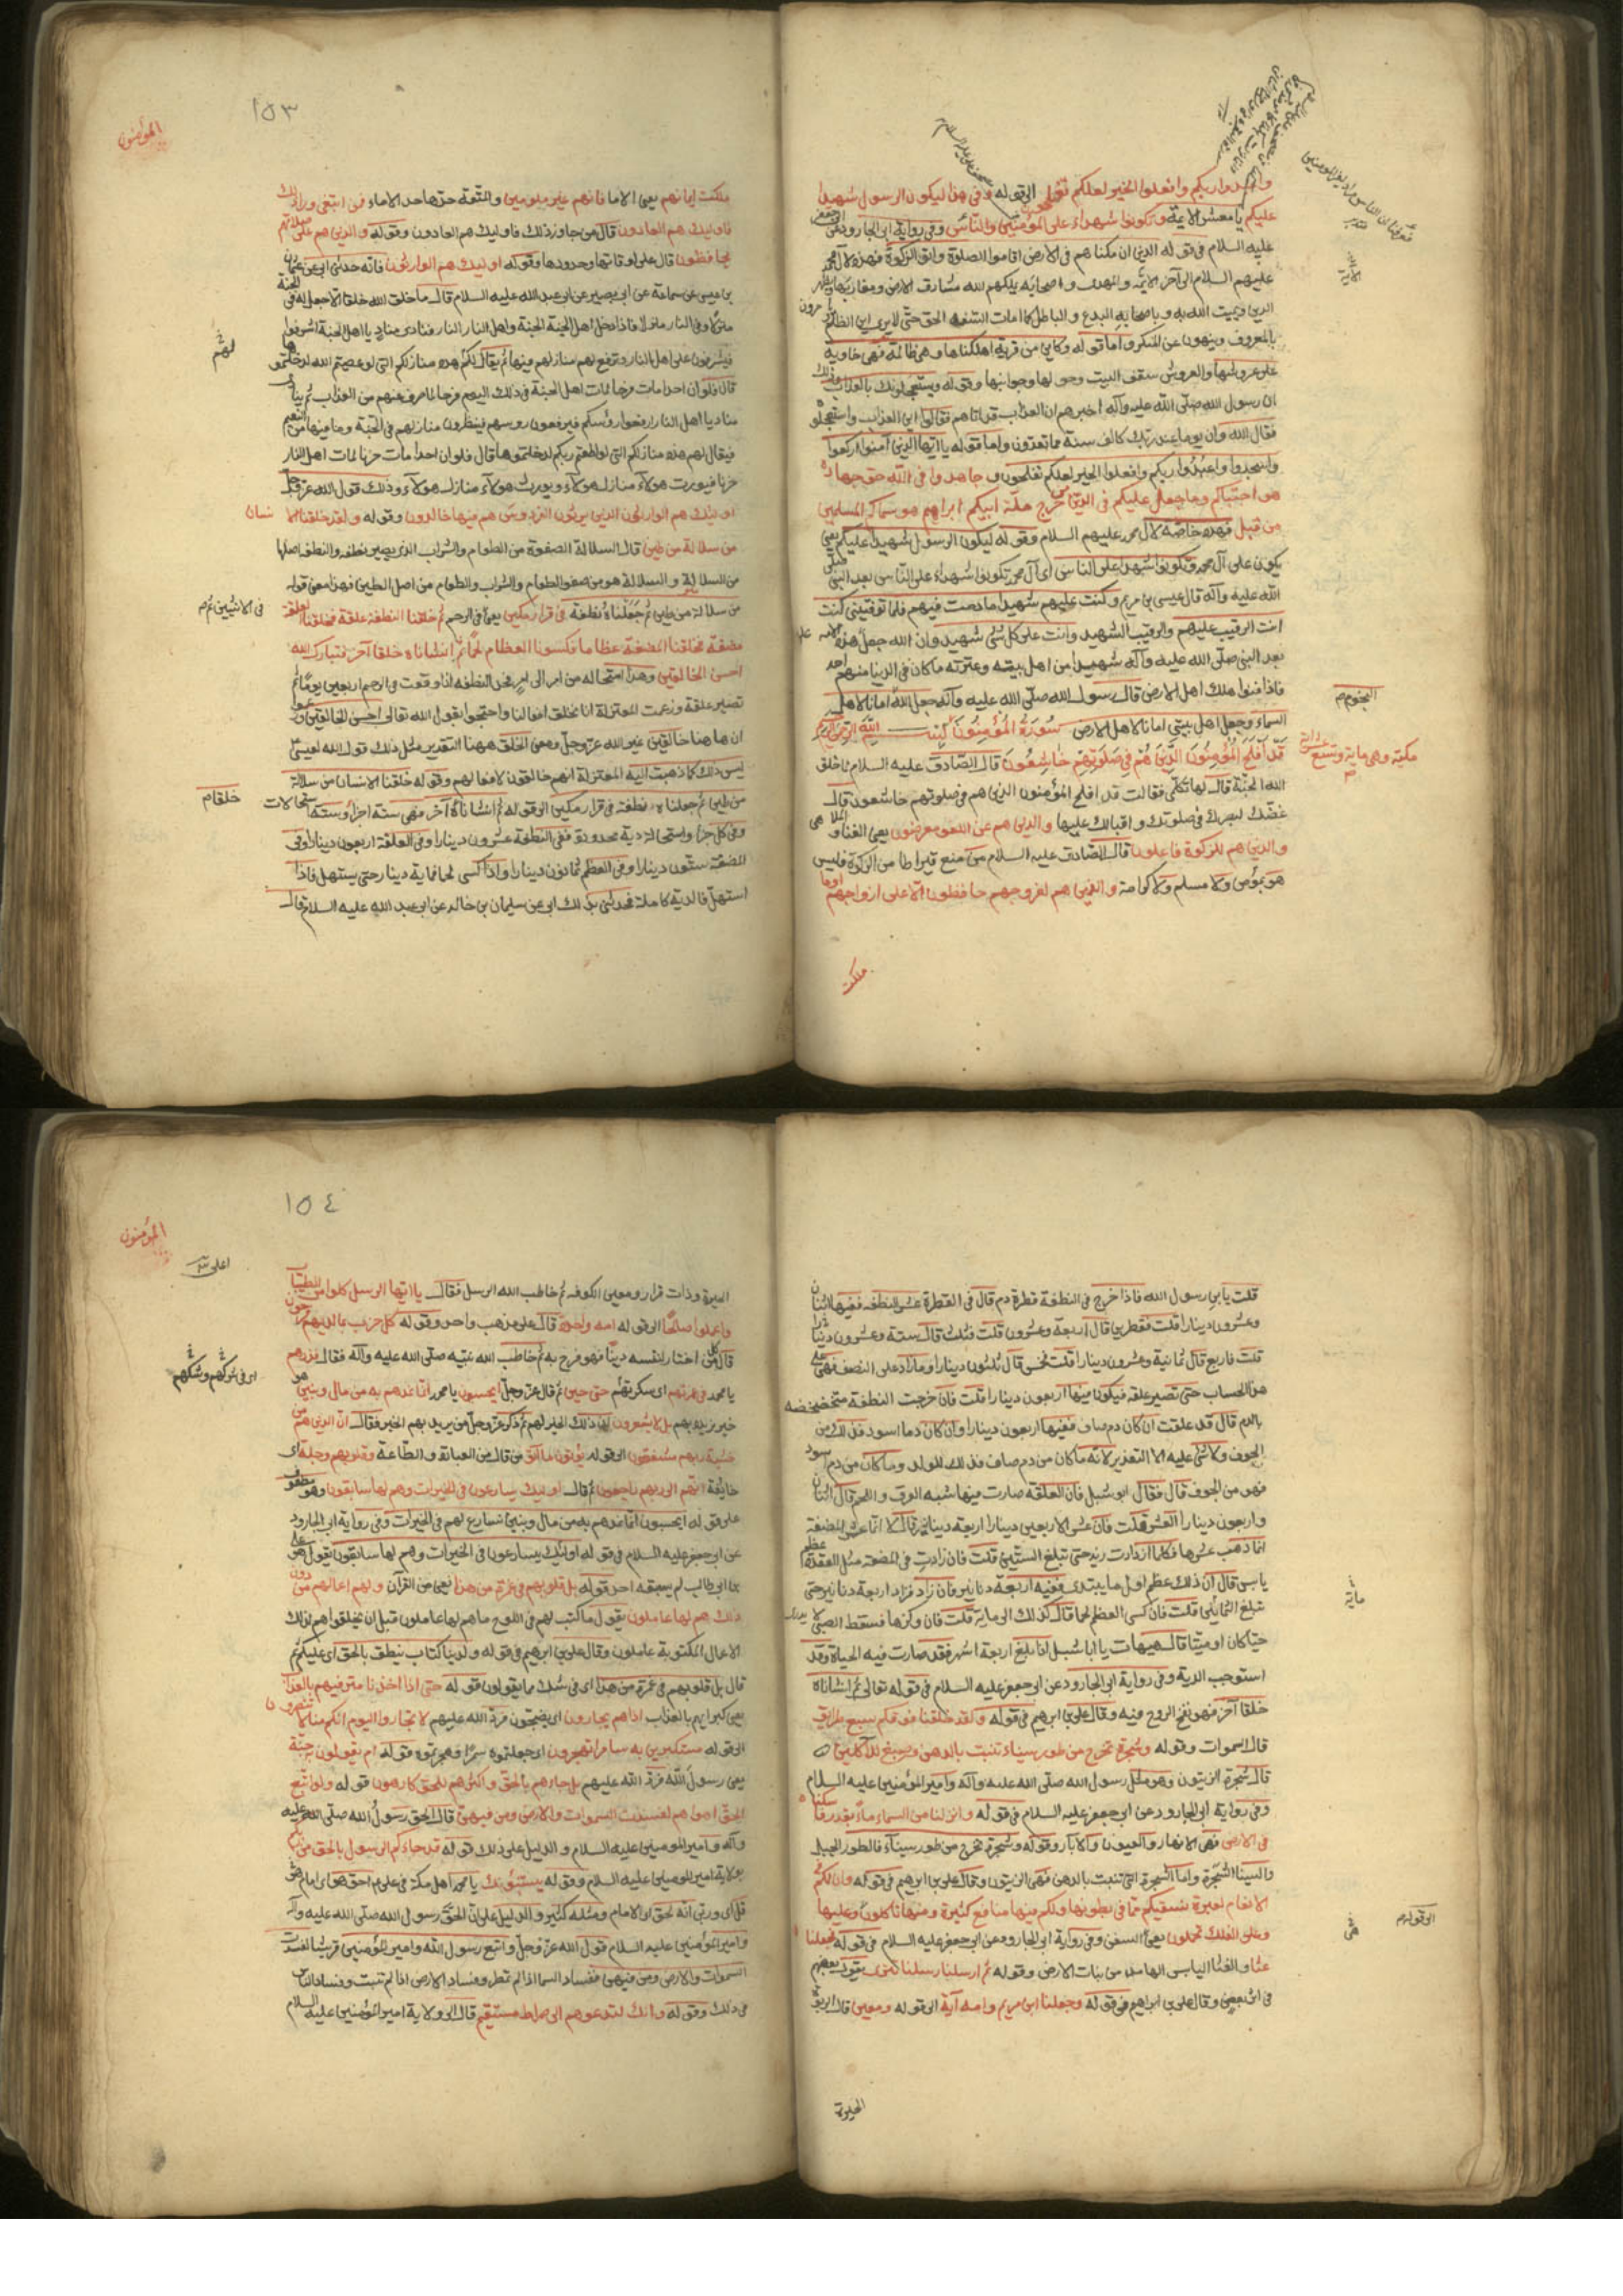 واعبدوا ربكم وافعلوا الخير لعلكم تفلحون الى قوله وفي هذا ليكون الرسول شهيدا
عليكم يا معشر الائمة وتكونوا شهداء على المؤمنين والناس وفي رواية ابي الجارود عن ابي جعفر
عليه السلام في قوله الذين ان مكناهم في الارض اقاموا الصلوة واتوا الزكوة فهذه لآل محمد
عليهم السلام الى آخر الائمة والمهدي واصحابه يملكهم الله مشارق الارض ومغاربها ويظهر
الدين ويميت الله به وباصحابه البدع والباطل كما امات السفه الحق حتى لا يرى اين الظلم ويأمرون
بالمعروف وينهون عن المنكر واما قوله وكاين من قرية اهلكناها وهي ظالمة فهي خاوية
على عروشها والعروش سقف البيت وحولها وجوانبها وقوله ويستعجلونك بالعذاب وذلك
ان رسول الله صلى الله عليه وآله اخبرهم ان العذاب قد اتاهم فقالوا اين العذاب واستعجلوه
فقال الله وان يوما عند ربك كالف سنة مما تعدون واما قوله يا ايها الذين آمنوا اركعوا
واسجدوا واعبدوا ربكم وافعلوا الخير لعلكم تفلحون وجاهدوا في الله حق جهاده
هو اجتباكم وما جعل عليكم في الدين من حرج ملة ابيكم ابراهيم هو سماكم المسلمين
من قبل فهذه خاصة لآل محمد عليهم السلام وقوله ليكون الرسول شهيدا عليكم يعني
يكون على آل محمد وتكونوا شهداء على الناس اي آل محمد تكونوا شهداء على الناس بعد النبي صلى
الله عليه وآله قال عيسى بن مريم وكنت عليهم شهيدا ما دمت فيهم فلما توفيتني كنت
انت الرقيب عليهم والرقيب الشهيد وانت على كل شئ شهيد وان الله جعل على هذه الامة
بعد النبي صلى الله عليه وآله شهيدا من اهل بيته وعترته ما كان في الدنيا منهم احد
فاذا فنوا هلك اهل الارض قال رسول الله صلى الله عليه وآله جعل الله امانا لاهل
السماء وجعل اهل بيتي امانا لاهل الارض سورة المؤمنون بسم الله الرحمن الرحيم
قد افلح المؤمنون الذين هم في صلوتهم خاشعون قال الصادق عليه السلام لما خلق
الله الجنة قال لها تكلمي فقالت قد افلح المؤمنون الذين هم في صلوتهم خاشعون قال
غضك بصرك في صلوتك واقبالك عليها والذين هم عن اللغو معرضون يعني الغناء والملاهي
والذين هم للزكوة فاعلون قال الصادق عليه السلام من منع قيراطا من الزكوة فليس
هو بمؤمن ولا مسلم ولا كرامة والذين هم لفروجهم حافظون الا على ازواجهم او ما
ملكت
النجوم
مكية وهي ماية وتسع
١٥٣
المؤمنون
ملكت ايمانهم يعني الاما فانهم غير ملومين والمتعة حدها حد الاماء فمن ابتغى وراء ذلك
فاوليك هم العادون قال من جاوز ذلك فاوليك هم العادون وقوله والذين هم على صلاتهم
يحافظون قال على اوقاتها وحدودها وقوله اوليك هم الوارثون فانه حدثني ابي عن عثمان
بن عيسى عن سماعة عن ابي بصير عن ابي عبد الله عليه السلام قال ما خلق الله خلقا الا جعل له في الجنة
منزلا وفي النار منزلا فاذا دخل اهل الجنة الجنة واهل النار النار فنادى مناد يا اهل الجنة اشرفوا
فيشرفون على اهل النار وترفع لهم منازلهم فيها ثم يقال لكم هذه منازلكم التي لو عصيتم الله لدخلتموها
قال فلو ان احدا مات فرحا لمات اهل الجنة في ذلك اليوم فرحا لما صرف عنهم من العذاب ثم ينادي
مناد يا اهل النار ارفعوا رؤسكم فيرفعون روسهم فينظرون منازلهم في الجنة وما فيها من النعيم
فيقال لهم هذه منازلكم التي لو اطعتم ربكم لدخلتموها قال فلو ان احدا مات حزنا لمات اهل النار
حزنا فيورث هولاء منازل هولاء ويورث هولاء منازل هولاء وذلك قول الله عز وجل
اوليك هم الوارثون الذين يرثون الفردوس هم فيها خالدون وقوله ولقد خلقنا الانسان
من سلالة من طين قال السلالة الصفوة من الطعام والشراب الذي يصير نطفة والنطفة اصلها
من السلالة والسلالة هو من صفو الطعام والشراب والطعام من اصل الطين فهذا معنى قوله
من سلالة من طين ثم جعلناه نطفة في قرار مكين يعني في الرحم ثم خلقنا النطفة علقة فخلقنا العلقة
مضغة فخلقنا المضغة عظاما فكسونا العظام لحما ثم انشاناه خلقا آخر فتبارك الله
احسن الخالقين وهذا استحالة من امر الى امر فحد النطفة اذا وقعت في الرحم اربعين يوما ثم
تصير علقة وزعمت المعتزلة انا نخلق افعالنا واحتجوا بقول الله تعالى احسن الخالقين وزعموا
ان هاهنا خالقين غير الله عز وجل ومعنى الخلق ههنا التقدير مثل ذلك قول الله لعيسى
ليس ذلك كما ذهبت اليه المعتزلة انهم خالقون لافعالهم وقوله خلقنا الانسان من سلالة
من طين ثم جعلناه نطفة في قرار مكين الى قوله ثم انشاناه آخر فهي ستة اجزاء وستة استحالات
وفي كل جزء واستحالة دية محدودة ففي النطفة عشرون دينارا وفي العلقة اربعون دينارا وفي
المضغة ستون دينارا وفي العظم ثمانون دينارا واذا كسى لحما فماية دينار حتى يستهل فاذا
استهل فالدية كاملة فحدثني بذلك ابي عن سليمان بن خالد عن ابي عبد الله عليه السلام قال
لهم
خلقا
قلت يا بن رسول الله فاذا خرج في النطفة قطرة دم قال في القطرة عشر النطفة ففيها اثنان
وعشرون دينارا قلت فقطرتين قال اربعة وعشرون قلت فثلث قال ستة وعشرون دينارا
قلت فاربع قال ثمانية وعشرون دينارا قلت فخمس قال ثلثون دينارا وما زاد على النصف فهي على
هذا الحساب حتى تصير علقة فيكون فيها اربعون دينارا قلت فان خرجت النطفة متخضخضة
بالدم قال قد علقت ان كان دم صاف ففيها اربعون دينارا وان كان دما اسود فذلك من
الجوف ولا شئ عليه الا التعزير لانه ما كان من دم صاف فذلك للولد وما كان من دم اسود
فهو من الجوف قال فقال ابو شبل فان العلقة صارت فيها شبه العروق واللحم قال اثنان
واربعون دينارا العشر قلت فان عشر الاربعين دينارا اربعة دنانير قال لا انما عشر المضغة
انما ذهب عشرها فكلما ازدادت زيد حتى تبلغ الستين قلت فان زادت في المضغة مثل العقدة عظم
يابس قال ان ذلك عظم اول ما يبتدي ففيه اربعة دنانير فان زاد فزاد اربعة دنانير حتى
تبلغ الثمانين قلت فان كسى العظم لحما قال كذلك الى ماية قلت فان وكزها فسقط الصبي لا يدرى
حيا كان او ميتا قال هيهات يا ابا شبل اذا بلغ اربعة اشهر فقد صارت فيه الحياة وقد
استوجب الدية وفي رواية ابي الجارود عن ابي جعفر عليه السلام في قوله تعالى ثم انشاناه
خلقا آخر فهو نفخ الروح فيه وقال علي بن ابرهيم في قوله ولقد خلقنا فوقكم سبع طرائق
قال السموات وقوله وشجرة تخرج من طور سيناء تنبت بالدهن وصبغ للآكلين
قال شجرة الزيتون وهو مثل رسول الله صلى الله عليه وآله وامير المؤمنين عليه السلام
وفي رواية ابي الجارود عن ابي جعفر عليه السلام في قوله وانزلنا من السماء ماء بقدر فاسكناه
في الارض فهي الانهار والعيون والآبار وقوله وشجرة تخرج من طور سيناء فالطور الجبل
والسينا الشجرة واما الشجرة التي تنبت بالدهن فهي الزيتون وقال علي بن ابرهيم في قوله وان لكم
الانعام لعبرة نسقيكم مما في بطونها ولكم فيها منافع كثيرة ومنها تاكلون وعليها
وعلى الفلك تحملون يعني السفن وفي رواية ابي الجارود عن ابي جعفر عليه السلام في قوله فجعلناهم
غثاء والغثا اليابس الهامد من نبات الارض وقوله ثم ارسلنا رسلنا تترى يقول بعضهم
في اثر بعض وقال علي بن ابراهيم في قوله وجعلنا ابن مريم وامه آية الى قوله ومعين قال الربوة
الحيرة
ماية
الى قوله
١٥٤
المؤمنون
الحيرة وذات قرار ومعين الكوفة ثم خاطب الله الرسل فقال يا ايها الرسل كلوا من الطيبات
واعملوا صالحا الى قوله امة واحدة قال على مذهب واحد وقوله كل حزب بما لديهم فرحون
قال كل من اختار لنفسه دينا فهو فرح به ثم خاطب الله نبيه صلى الله عليه وآله فقال فذرهم
يا محمد في غمرتهم اي سكرتهم حتى حين ثم قال عز وجل ايحسبون يا محمد انما نمدهم به من مال وبنين هو
خير نريده بهم بل لا يشعرون ان ذلك الخير لهم ثم ذكر عز وجل من يريد بهم الخير فقال ان الذين هم من
خشية ربهم مشفقون الى قوله يؤتون ما آتوا قال من العبادة والطاعة وقلوبهم وجلة اي
خايفة انهم الى ربهم راجعون ثم قال اوليك يسارعون في الخيرات وهم لها سابقون وهو معطوف
على قوله ايحسبون انما نمدهم به من مال وبنين نسارع لهم في الخيرات وفي رواية ابي الجارود
عن ابي جعفر عليه السلام في قوله اوليك يسارعون في الخيرات وهم لها سابقون يقول هو علي
بن ابي طالب لم يسبقه احد قوله بل قلوبهم في غمرة من هذا يعني من القرآن ولهم اعمال من دون
ذلك هم لها عاملون يقول ما كتب لهم في اللوح ما هم لها عاملون قبل ان يخلقوا هم لذلك
الاعمال المكتوبة عاملون وقال علي بن ابرهيم في قوله ولدينا كتاب ينطق بالحق اي عليكم ثم
قال بل قلوبهم في غمرة من هذا اي في شك مما يقولون قوله حتى اذا اخذنا مترفيهم بالعذاب
يعني كبراءهم بالعذاب اذا هم يجارون اي يضجون فرد الله عليهم لا تجاروا اليوم انكم منا لا تنصرون
الى قوله مستكبرين به سامرا تهجرون اي جعلتموه سمرا وهجرتموه وقوله ام يقولون به جنة
يعني رسول الله فرد الله عليهم بل جاءهم بالحق واكثرهم للحق كارهون قوله ولو اتبع
الحق اهواءهم لفسدت السموات والارض ومن فيهن قال الحق رسول الله صلى الله عليه
وآله وامير المومنين عليه السلام والدليل على ذلك قوله قد جاءكم الرسول بالحق من ربكم
بولاية امير المومنين عليه السلام وقوله يستنبؤنك يا محمد اهل مكة في علي احق هو اي امام هو
قل اي وربي انه لحق اي لامام ومثله كثير والدليل على ان الحق رسول الله صلى الله عليه وآله
وامير المؤمنين عليه السلام قول الله عز وجل ولو اتبع رسول الله وامير المؤمنين قريشا لفسدت
السموات والارض ومن فيهن ففساد السما اذا لم تمطر وفساد الارض اذا لم تنبت وفساد الناس
في ذلك وقوله وانك لتدعوهم الى صراط مستقيم قال الى ولاية امير المؤمنين عليه السلام
اي في شكهم